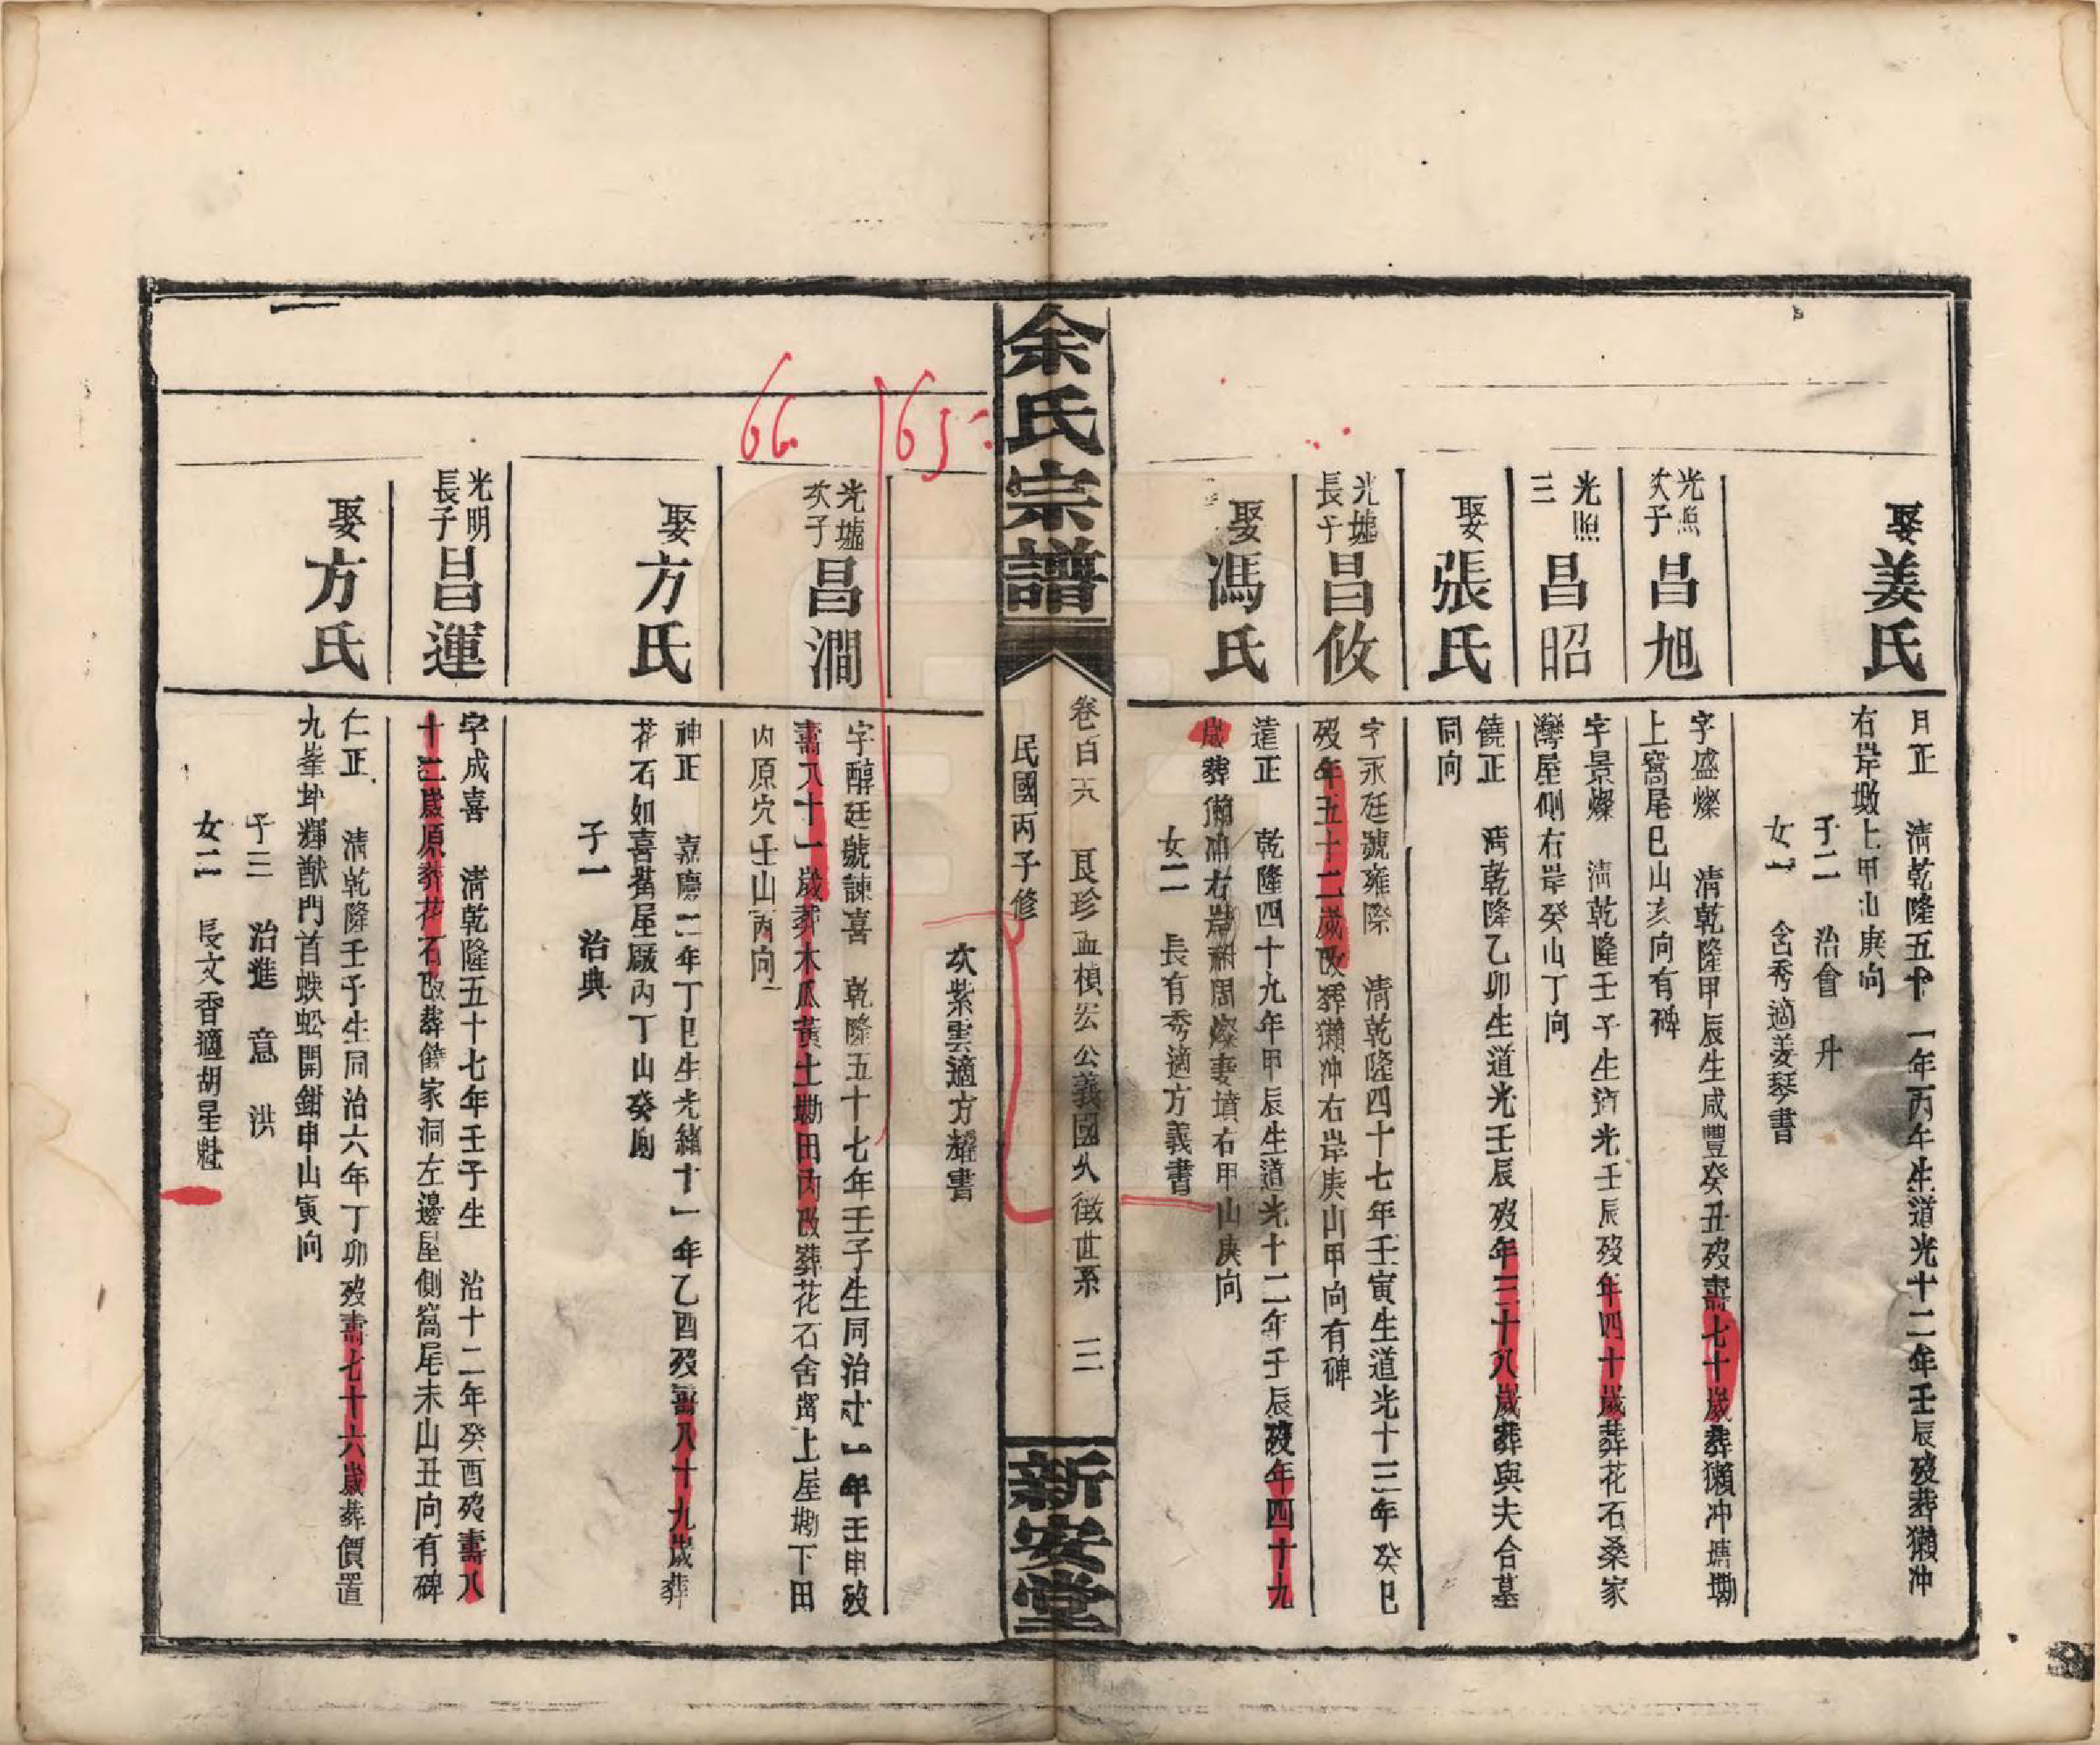 娶姜氏
月正 清乾隆五十一年丙午生道光十二年壬辰歿葬獺冲
右岸墩上甲山庚向
子二 治會 升
女一 含秀適姜琴書
光照次子 昌旭
字盛燦 清乾隆甲辰生咸豐癸丑歿壽七十歲葬獺冲塘墈
上窩尾巳山亥向有碑
光照三 昌昭
字景燦 清乾隆壬子生道光壬辰歿年四十歲葬花石桑家
灣屋側右岸癸山丁向
娶張氏
饒正 清乾隆乙卯生道光壬辰歿年三十八歲葬與夫合墓
同向
光墟長子 昌攸
字永廷號雍際 清乾隆四十七年壬寅生道光十三年癸巳
歿年五十二歲改葬獺冲右岸庚山甲向有碑
娶馮氏
遠正 乾隆四十九年甲辰生道光十二年壬辰歿年四十九
歲葬獺冲右岸嗣周燦妻墳右甲山庚向
女二 長有秀適方義書
余氏宗譜
卷百六 良珍血楨宏公義國久徵世系 三
民國丙子修
新安堂
次紫雲適方耀書
65
66
光墟次子 昌澗
字醇廷號諫喜 乾隆五十七年壬子生同治十一年壬申歿
壽八十一歲葬木瓜黃土墈田內改葬花石舍窩上屋墈下田
內原穴壬山丙向
娶方氏
神正 嘉慶二年丁巳生光緒十一年乙酉歿壽八十九歲葬
花石如喜舊屋廠內丁山癸向
子一 治典
光明長子 昌運
字成喜 清乾隆五十七年壬子生 治十二年癸酉歿壽八
十二歲原葬花石改葬饒家洞左邊屋側窩尾未山丑向有碑
娶方氏
仁正 清乾隆壬子生同治六年丁卯歿壽七十六歲葬價置
九峯坤輝猷門首蜈蚣開鉗申山寅向
子三 治進 意 洪
女二 長文香適胡星魁